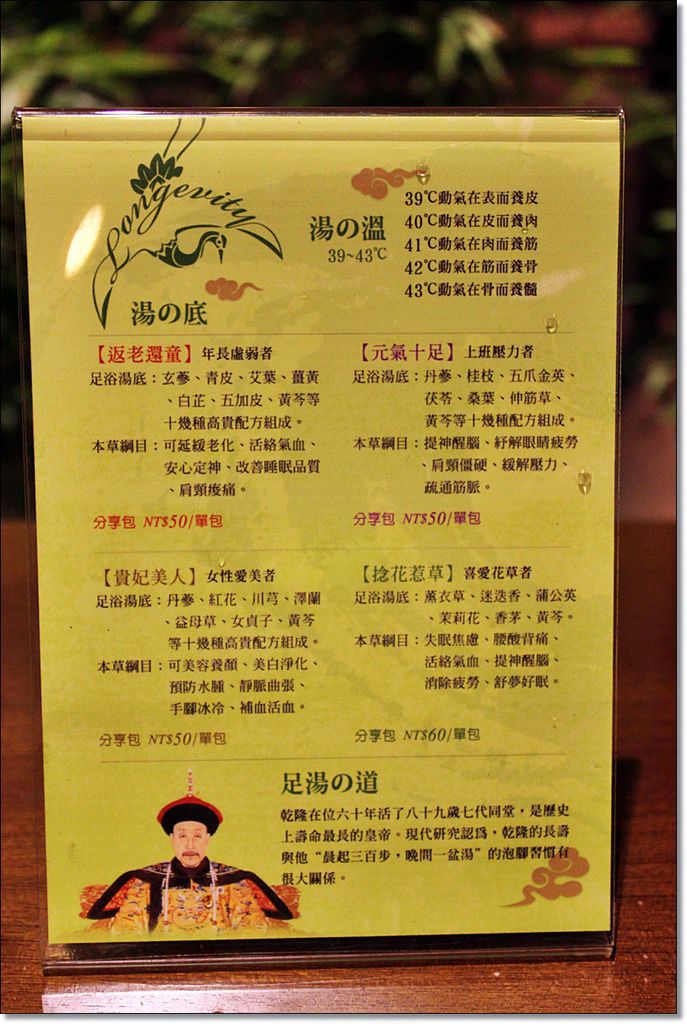 Longevity
湯の溫
39~43℃
39℃動氣在表而養皮
40℃動氣在皮而養肉
41℃動氣在肉而養筋
42℃動氣在筋而養骨
43℃動氣在骨而養髓
湯の底
【返老還童】年長虛弱者
足浴湯底：玄蔘、青皮、艾葉、薑黃
、白芷、五加皮、黃芩等
十幾種高貴配方組成。
本草綱目：可延緩老化、活絡氣血、
安心定神、改善睡眠品質
、肩頸痠痛。
分享包 NT$50/單包
【元氣十足】上班壓力者
足浴湯底：丹蔘、桂枝、五爪金英、
茯苓、桑葉、伸筋草、
黃芩等十幾種配方組成。
本草綱目：提神醒腦、紓解眼睛疲勞
、肩頸僵硬、緩解壓力、
疏通筋脈。
分享包 NT$50/單包
【貴妃美人】女性愛美者
足浴湯底：丹蔘、紅花、川芎、澤蘭
、益母草、女貞子、黃芩
等十幾種高貴配方組成。
本草綱目：可美容養顏、美白淨化、
預防水腫、靜脈曲張、
手腳冰冷、補血活血。
分享包 NT$50/單包
【捻花惹草】喜愛花草者
足浴湯底：薰衣草、迷迭香、蒲公英
、茉莉花、香茅、黃芩。
本草綱目：失眠焦慮、腰酸背痛、
活絡氣血、提神醒腦、
消除疲勞、舒夢好眠。
分享包 NT$60/單包
足湯の道
乾隆在位六十年活了八十九歲七代同堂，是歷史
上壽命最長的皇帝。現代研究認為，乾隆的長壽
與他“晨起三百步，晚間一盆湯”的泡腳習慣有
很大關係。